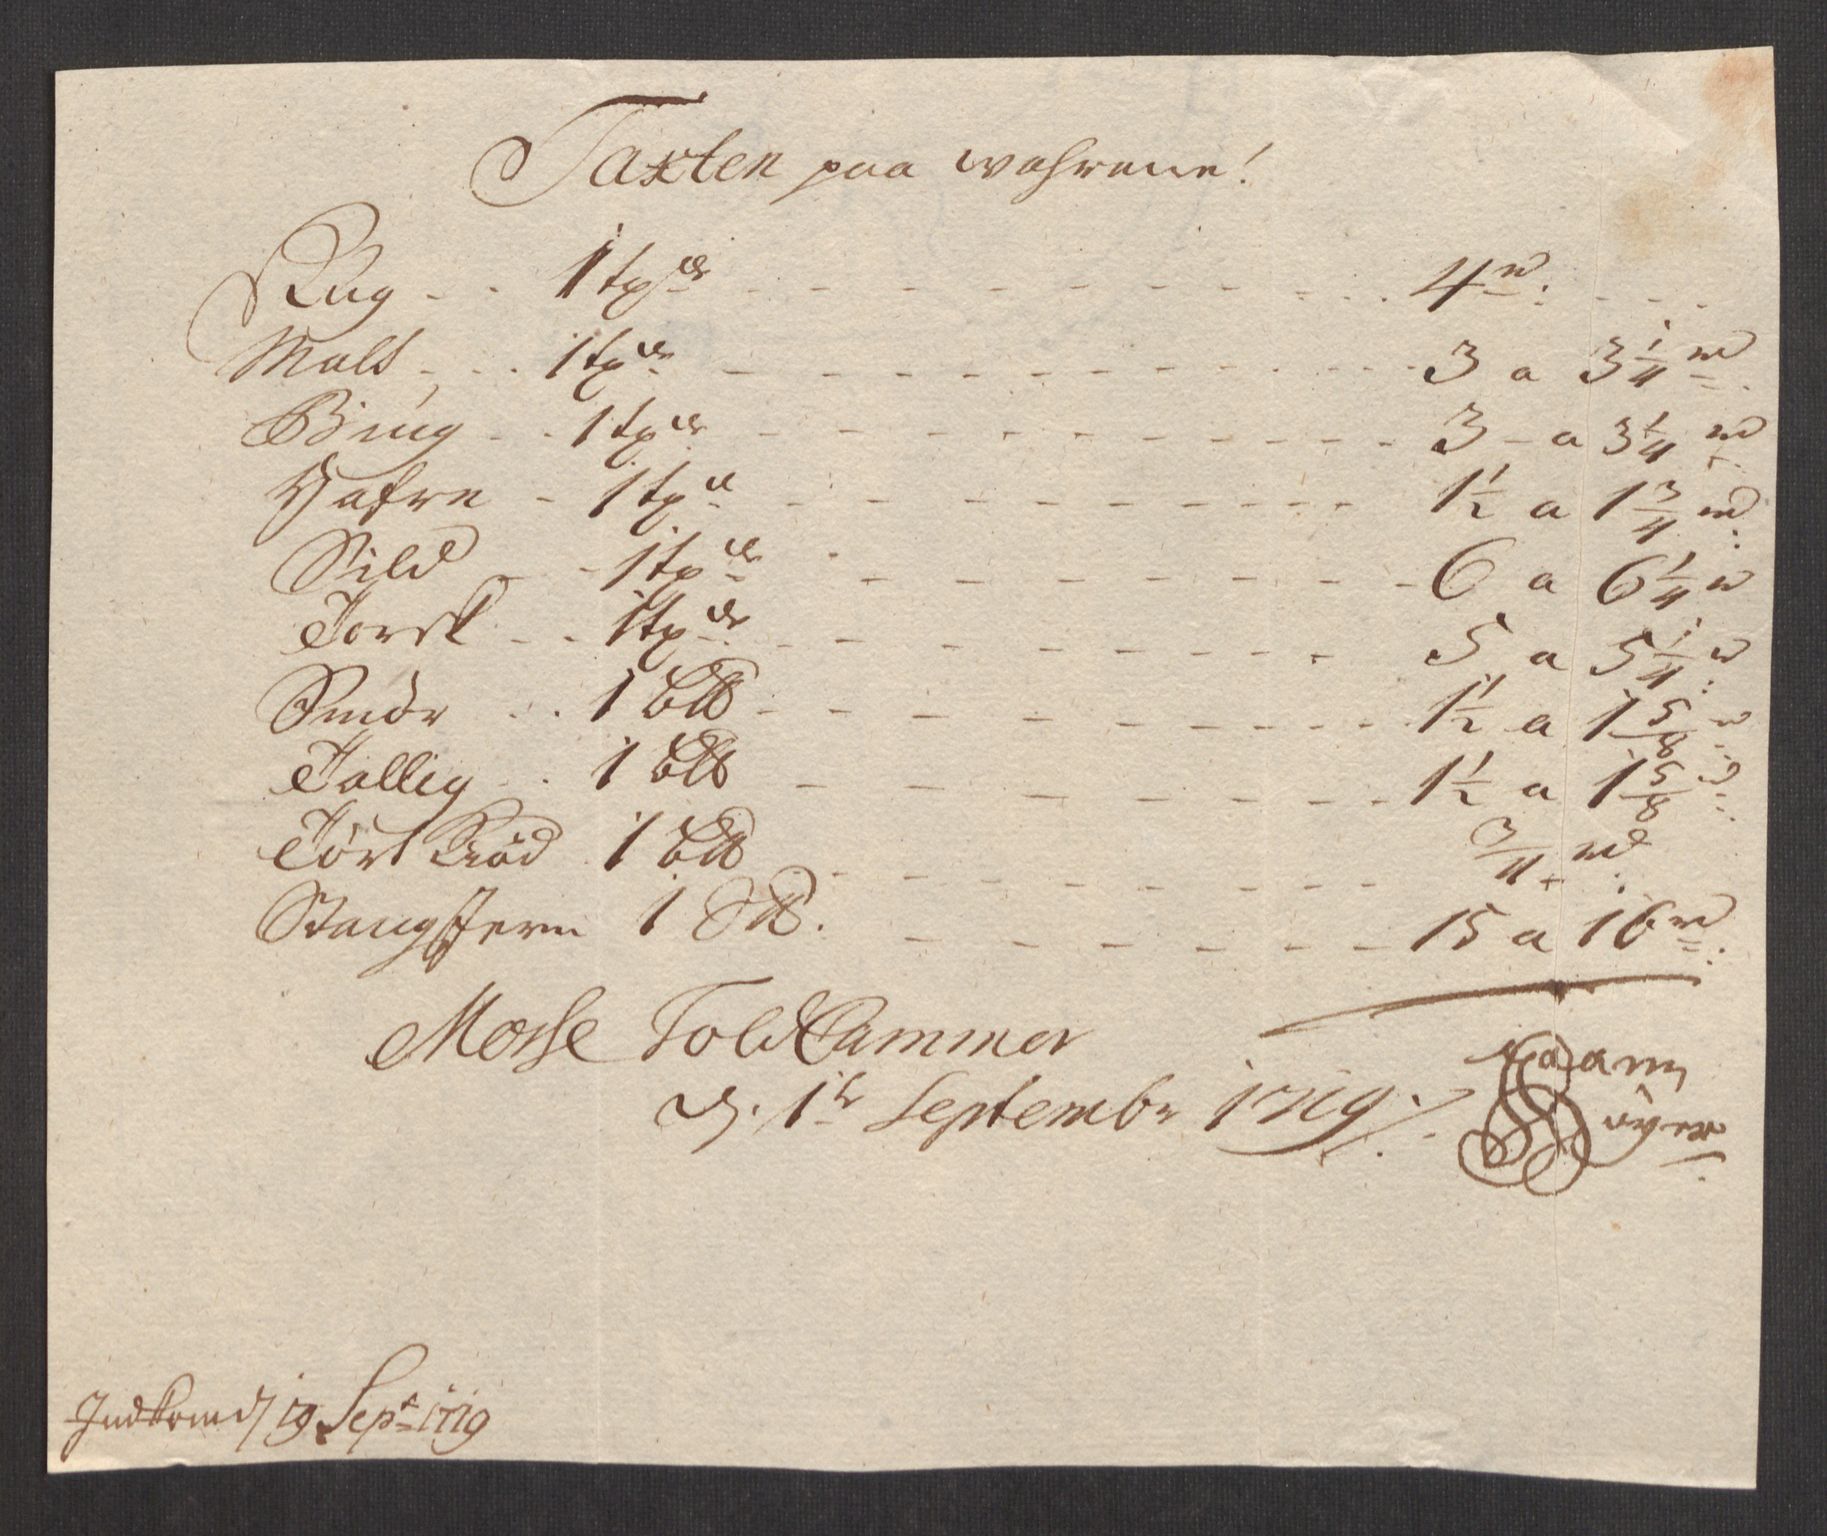 Taxten paa wahrene!
Rug - - 1 tp de - - - 4 rd:
Malt - - 1 tp de - - - 3 a 3 1/4 rd
Biug - - 1 tp de - - - 3 - a 3 1/4 rd
Hafre - 1 tp de - - - 1 1/2 a 1 3/4 rd:
Sild - - 1 tp de - - - 6 a 6 1/4 rd
Torsk - - 1 tp de - - - 5 a 5 1/4 rd:
Smör - - 1 b℔ - - - 1 1/2 a 1 5/8 rd
Tallig - - 1 b℔ - - - 1 1/2 a 1 5/8 rd:
Tört Kiöd 1 b℔ - - - 3/4 rd:
StangJern 1 S℔. - - - 15 a 16 rd:
Mosse Told Cammer
d. 1te Septembr 1719 ./.
Indkom d 19 Sept 1719